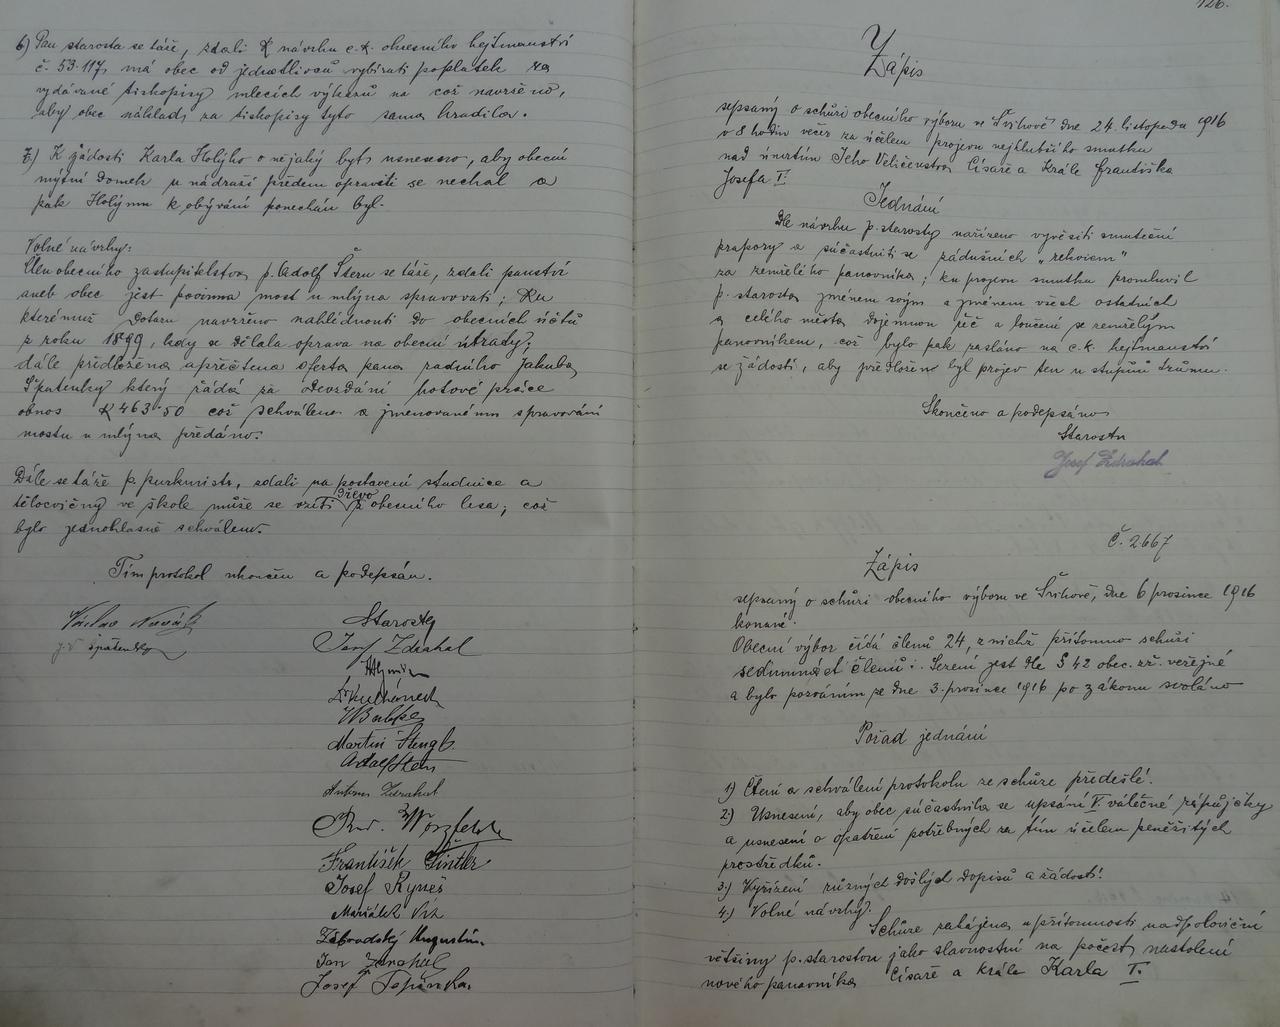 6) Pan starosta se táže, zdali K návrhu c.k. okresního hejtmanství
č. 53.117, má obec od jednotlivců vybírati poplatek za
vydávané tiskopisy mlecích výkazů na což navrženo,
aby obec náklad za tiskopisy tyto sama hradila.
7.) K žádosti Karla Holýho o nějaký byt usneseno, aby obecní
mýtní domek u nádraží předem opraviti se nechal a
pak Holýmu k obývání ponechán byl.
Volné návrhy:
Člen obecního zastupitelstva p. Adolf Štern se táže, zdali panství
aneb obec jest povinna most u mlýna spravovati; Ku
kterémuž dotazu navrženo nahlédnouti do obecních účtů
z roku 1899, kdy se dělala oprava na obecní útrady;
dále předložena a přečtena oferta pana radního Jakuba
Špatenky který žádá za odevzdání hotové práce
obnos K 463·50 což schváleno a jmenovanému spravování
mostu u mlýna předáno.
Dále se táže p. purkmistr, zdali na postavení studnice a
tělocvičny ve škole může se vzíti dřevo z obecního lesa; což
bylo jednohlasně schváleno.
Tím protokol ukončen a podepsán.
Václav Novák
Starosta
Špatenka
Josef Zdrahal
Martin Stengl
Adolf Stern
Antonín Zdrahal
Rud.
František
Josef Ryneš
Závodský Augustin
Jan Zdrahal
Josef Těpínka
126.
Zápis
sepsaný o schůzi obecního výboru ve Švihově dne 24. listopadu 1916
o 8 hodin večer za účelem projevu nejhlubšího smutku
nad úmrtím Jeho Veličenstva Císaře a Krále Františka
Josefa I.
Jednání
Dle návrhu p. starosty nařízeno vyvěsiti smuteční
prapory a súčastniti se zádušních „rekviem"
za zemřelého panovníka; ku projevu smutku promluvil
p. starosta jménem svým a jménem všech ostatních
a celého města dojemnou řeč a loučení se zemřelým
panovníkem, což bylo pak zasláno na c.k. hejtmanství
se žádostí, aby předložen byl projev ten u stupňů trůnu.
Skončeno a podepsáno
Starosta
Josef Zdrahal
Č. 2667
Zápis
sepsaný o schůzi obecního výboru ve Švihově, dne 6 prosince 1916
konané.
Obecní výbor čítá členů 24, z nichž přítomno schůzi
sedmnáct členů. Sezení jest dle § 42 obec. zř. veřejné
a bylo pozváním ze dne 3. prosince 1916 po zákonu svoláno
Pořad jednání
1) Čtení a schválení protokolu ze schůze předešlé.
2.) Usnesení, aby obec súčastnila se upsání V. válečné zápůjčky
a usnesení o opatření potřebných za tím účelem peněžitých
prostředků.
3.) Vyřízení různých došlých dopisů a žádostí.
4.) Volné návrhy.
Schůze zahájena u přítomnosti nadpoloviční
většiny p. starostou jako slavnostní na počest nastolení
nového panovníka Císaře a krále Karla I.